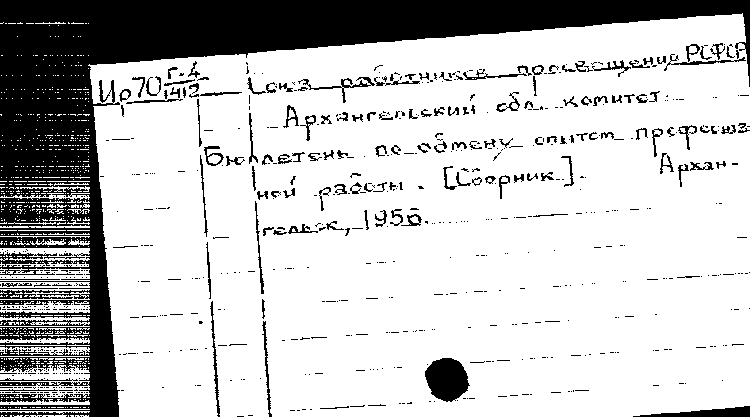 Ир70 Г-4/1412 Союз работников просвещения РСФСР
Архангельский обл. комитет.
Бюллетень по обмену опытом профсоюз
ной работы. [Сборник]. Архан-
гельск, 1956.